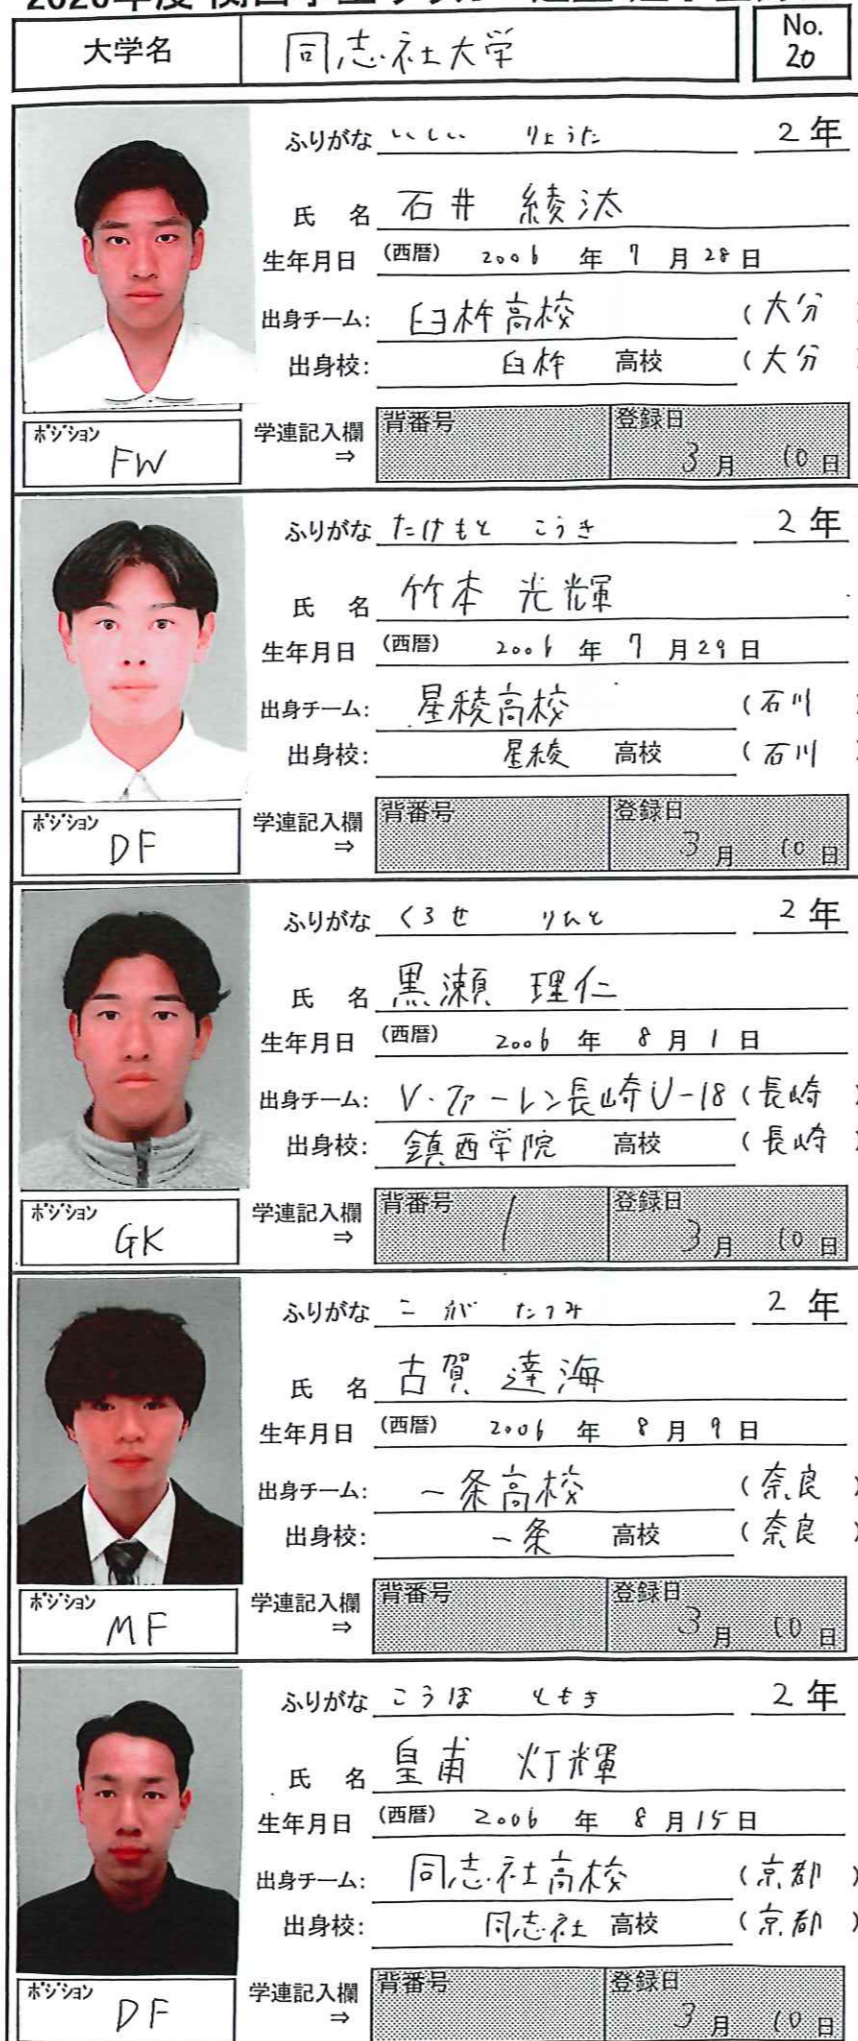 大学名 同志社大学 No. 20
ふりがな いしい りょうた 2年
氏 名 石井 綾汰
生年月日 (西暦) 2006 年 7 月 28 日
出身チーム: 臼杵高校 (大分
出身校: 臼杵 高校 (大分
ポジション FW 学連記入欄 ⇒ 背番号 登録日 3 月 10 日
ふりがな たけもと こうき 2年
氏 名 竹本 光輝
生年月日 (西暦) 2006 年 7 月 29 日
出身チーム: 星稜高校 (石川
出身校: 星稜 高校 (石川
ポジション DF 学連記入欄 ⇒ 背番号 登録日 3 月 10 日
ふりがな くろせ りひと 2年
氏 名 黒瀬 理仁
生年月日 (西暦) 2006 年 8 月 1 日
出身チーム: V・ファーレン長崎U-18 (長崎 )
出身校: 鎮西学院 高校 (長崎 )
ポジション GK 学連記入欄 ⇒ 背番号 1 登録日 3 月 10 日
ふりがな こが たつみ 2年
氏 名 古賀 達海
生年月日 (西暦) 2006 年 8 月 9 日
出身チーム: 一条高校 (奈良 )
出身校: 一条 高校 (奈良 )
ポジション MF 学連記入欄 ⇒ 背番号 登録日 3 月 10 日
ふりがな こうほ ともき 2年
氏 名 皇甫 灯輝
生年月日 (西暦) 2006 年 8 月 15 日
出身チーム: 同志社高校 (京都 )
出身校: 同志社 高校 (京都 )
ポジション DF 学連記入欄 ⇒ 背番号 登録日 3 月 10 日